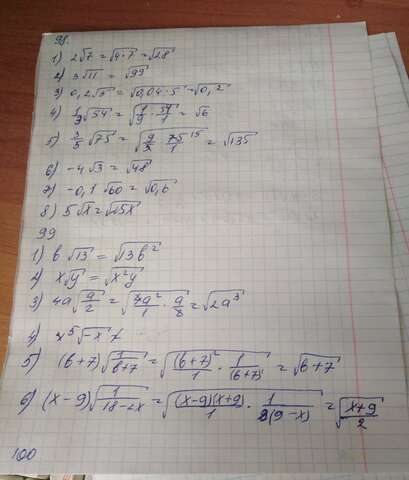 98.
1) 2√7 = √4·7 = √28
2) 3√11 = √99
3) 0,2√5 = √0,04·5 = √0,2
4) 1/3 √54 = √(1/9 · 54/1) = √6
5) 3/5 √75 = √(9/5 · 75/1 15) = √135
6) -4√3 = √48
7) -0,1 √60 = √0,6
8) 5√x = √25x
99
1) b√13 = √13b²
2) x√y = √x²y
3) 4a√(a/2) = √(4a²/1 · a/8) = √2a³
4) x⁵√-x
5) (b+7)√(1/(b+7)) = √((b+7)²/1 · 1/(b+7)) = √b+7
6) (x-9)√(1/(18-2x)) = √((x-9)(x+9)/1 · 1/2(9-x)) = √((x+9)/2)
100